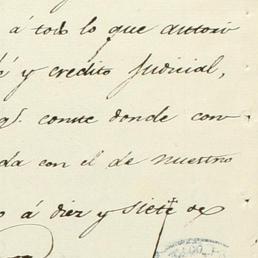 á todo lo que autori
é y credito Judicial,
qe. conste donde con
da con el de nuestro
o á diez y siete de